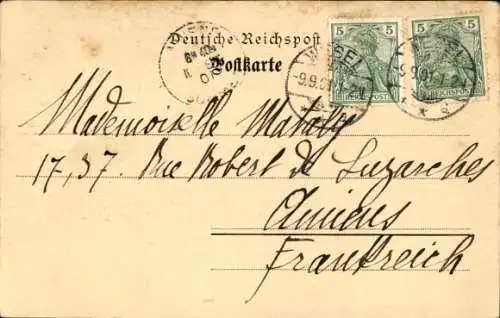 Deutsche Reichspost
Postkarte
5 5
5 5
REICHSPOST
REICHSPOST
9.9.01
Mademoiselle
17,37. Rue Robert de Luzarches
Amiens
Frankreich